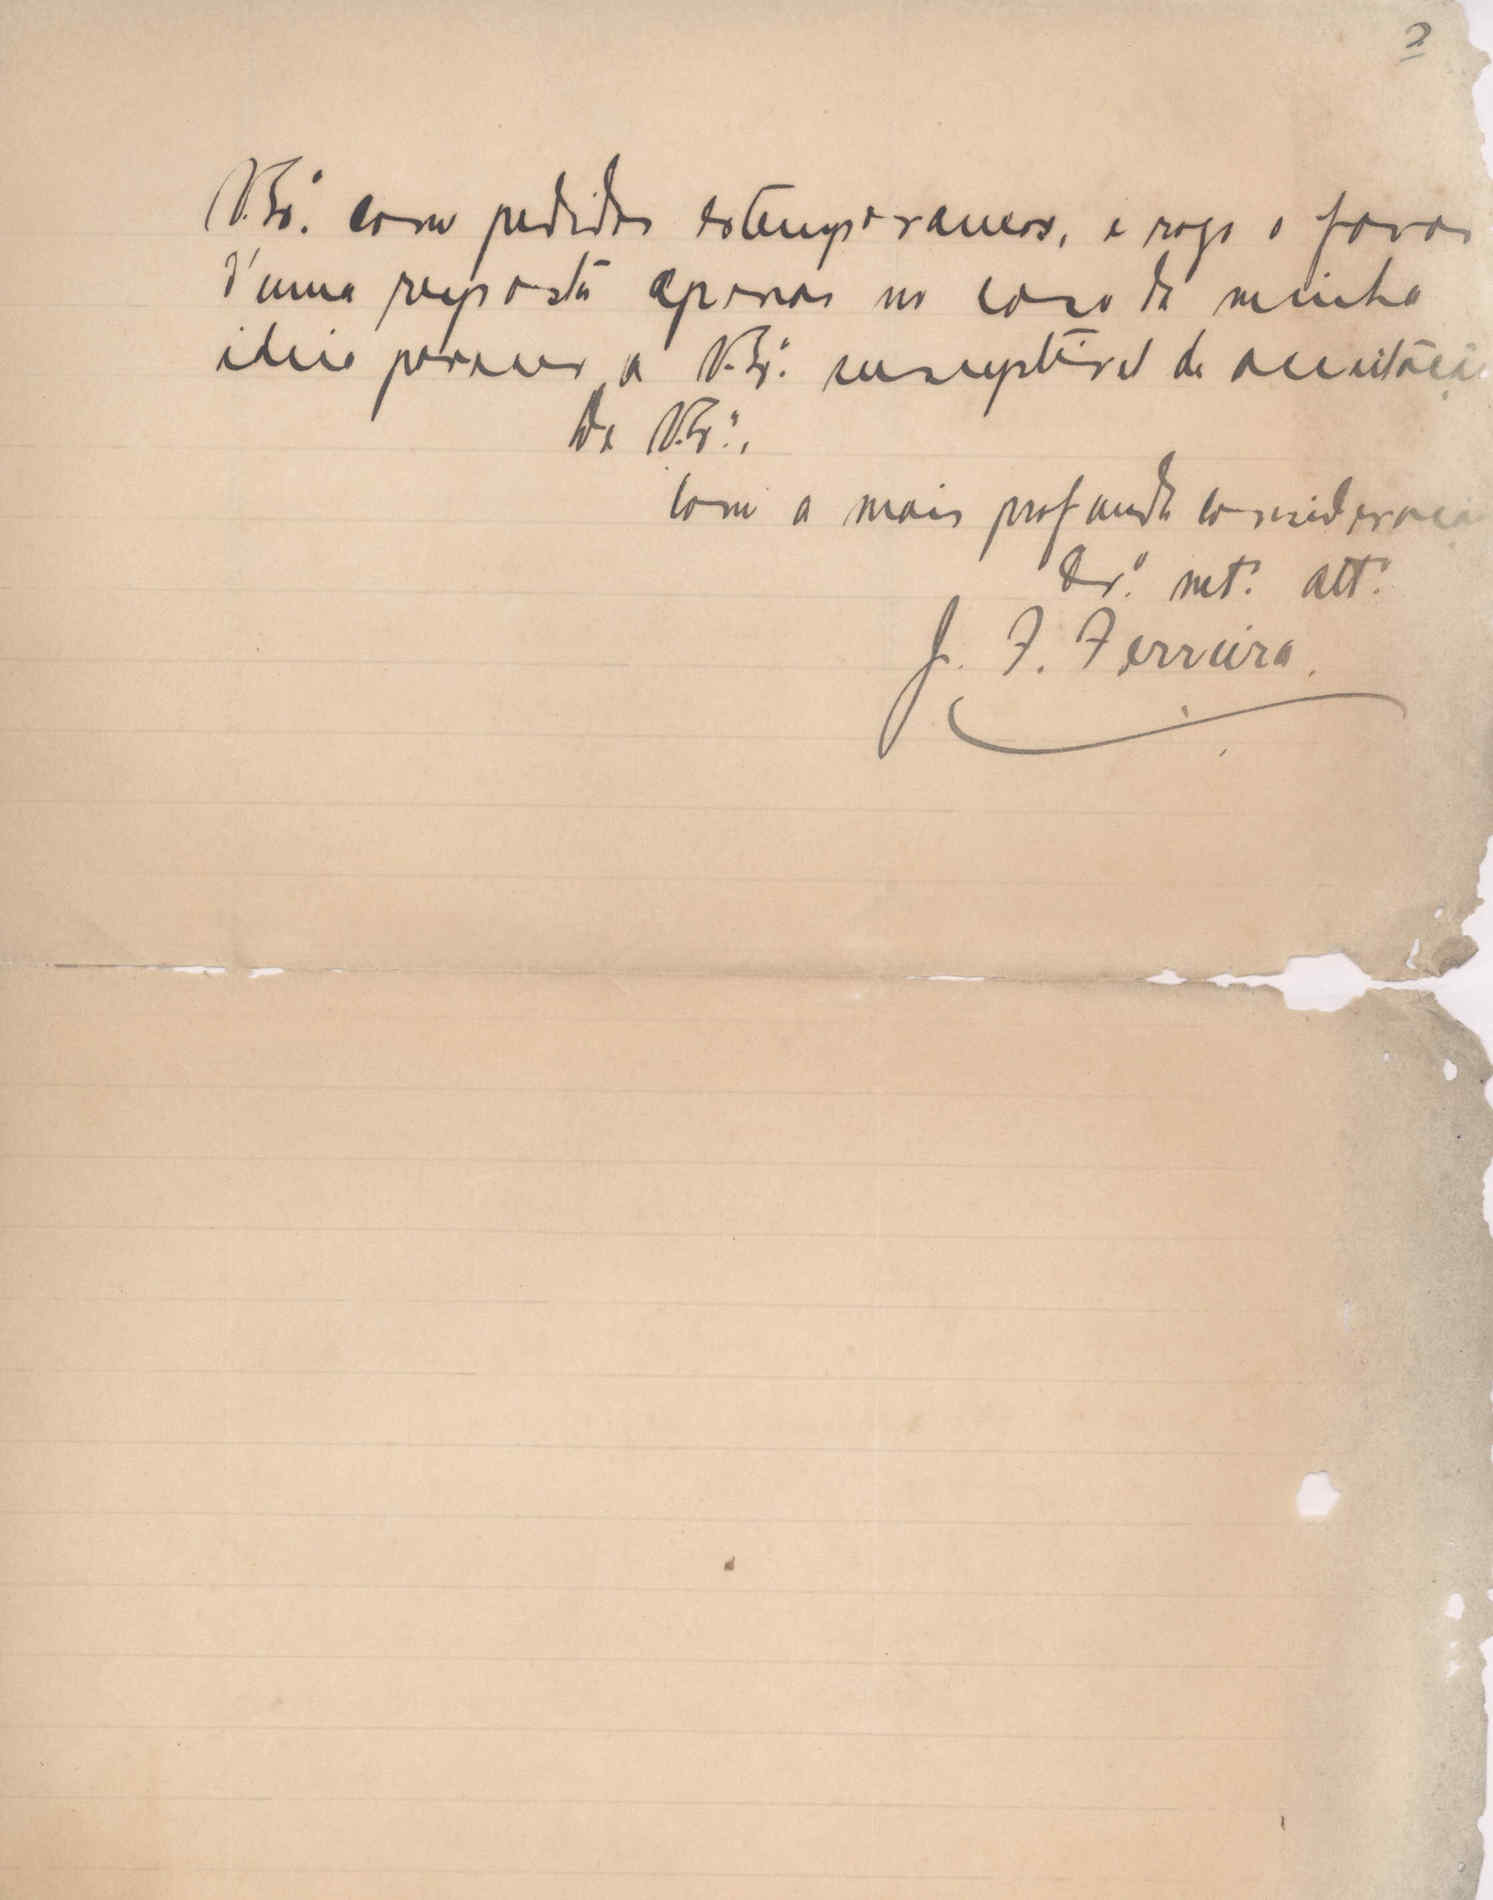 2
V. Ex.ª com pedidos extemporaneos, e rogo o favor
d'uma resposta apenas no caso da minha
ideia parecer a V. Ex.ª susceptivel de acceitação
De V. Ex.ª,
Com a mais profunda consideração
Cr.º mt.º att.º
J. F. Ferreira.